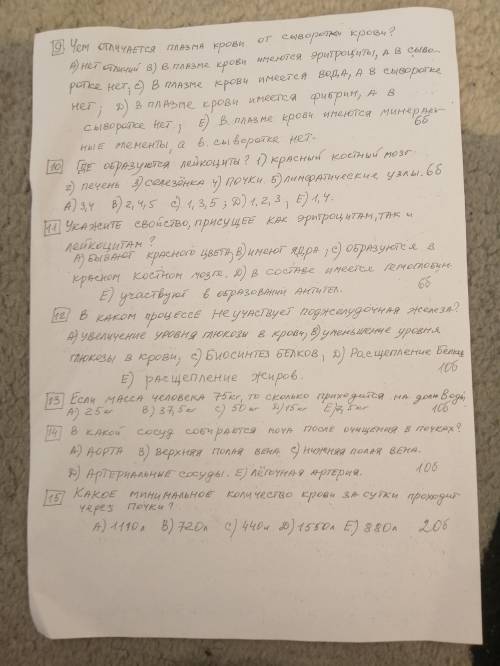 9 Чем отличается плазма крови от сыворотки крови?
А) нет отличий В) в плазме крови имеются эритроциты, а в сыво-
ротке нет; С) в плазме крови имеется вода, а в сыворотке
нет; D) в плазме крови имеется фибрин, а в
сыворотке нет; Е) в плазме крови имеются минераль-
ные элементы, а в сыворотке нет. 6б
10 Где образуются лейкоциты? 1) красный костный мозг
2) печень 3) селезёнка 4) почки. 5) лимфатические узлы. 6б
А) 3,4 В) 2,4,5 С) 1,3,5; D) 1,2,3; Е) 1,4.
11 Укажите свойство, присущее как эритроцитам, так и
лейкоцитам?
А) бывают красного цвета; В) имеют ядра; С) образуются в
красном костном мозге. D) в составе имеется гемоглобин.
Е) участвуют в образовании антител. 6б
12 В каком процессе не участвует поджелудочная железа?
А) увеличение уровня глюкозы в крови; В) уменьшение уровня
глюкозы в крови; С) Биосинтез белков; D) Расщепление белков
Е) расщепление жиров. 10б
13 Если масса человека 75кг, то сколько приходится на долю воды?
А) 25кг В) 37,5кг С) 50кг D) 15кг Е) 7,5кг 10б
14 В какой сосуд собирается моча после очищения в почках?
А) Аорта В) верхняя полая вена С) нижняя полая вена.
D) Артериальные сосуды. Е) лёгочная артерия. 10б
15 Какое минимальное количество крови за сутки проходит
через почки?
А) 1110л В) 720л С) 440л D) 1550л Е) 880л 20б